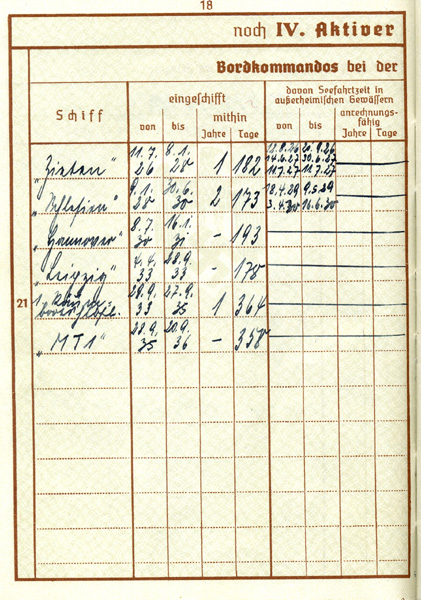 18
noch IV. Aktiver
Bordkommandos bei der
Schiff
eingeschifft
davon Seefahrtzeit in
außerheimischen Gewässern
von
bis
mithin
Jahre
Tage
von
bis
anrechnungs-
fähig
Jahre
Tage
„Zieten“ 11.7.26 8.1.28 1 182
14.6.27 30.6.27
11.7.27 18.7.27
„Schlesien“ 9.1.28 30.6.30 2 173 18.4.29 9.5.29
3.4.30 16.6.30
„Hannover“ 8.7.30 16.1.31 - 193
„Leipzig“ 4.4.33 28.9.33 - 178
21
28.9.33 27.9.35 1 364
„MT1“ 28.9.35 20.9.36 - 358